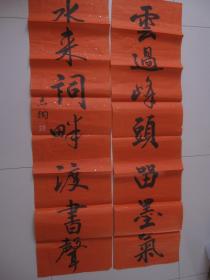 雲過峰頭留墨氣
水来詞畔渡書聲